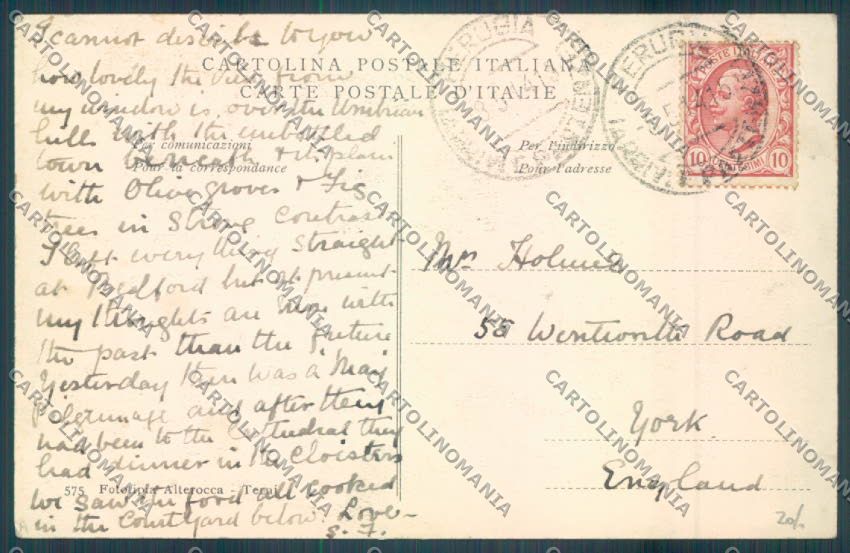 I cannot describe to you
how lovely the view from
my window is over the Umbrian
hills with the
town beneath & the plain
with Olive groves & Fig
trees in Strong Contrast
I left everything Straight
at Bedford but at present
my thoughts are more with
the past than the future
Yesterday there was a May
pilgrimage and after they
had been to the Cathedral they
had dinner in the Cloisters
We Saw the food all cooked
in the Courtyard below. Love
S. F.
CARTOLINA POSTALE ITALIANA
CARTE POSTALE D'ITALIE
Per comunicazioni
Pour la correspondance
Per l'indirizzo
Pour l'adresse
575 Fototipia Alterocca - Terni
PERUGIA
PERUGIA
POSTE ITALIANE
10 CENTESIMI 10
Mrs Holmes
55 Wentworth Road
York.
England
20/.
CARTOLINOMANIA